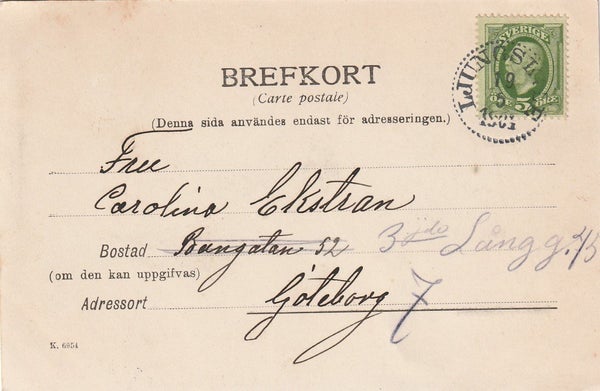 SVERIGE
5 ÖRE
LJUNGS
19
5
1901
BREFKORT
(Carte postale)
(Denna sida användes endast för adresseringen.)
Fru
Carolina Ekstran
Bostad Bangatan 52 3dje Långg.
(om den kan uppgifvas)
Adressort Göteborg 7
K. 6954